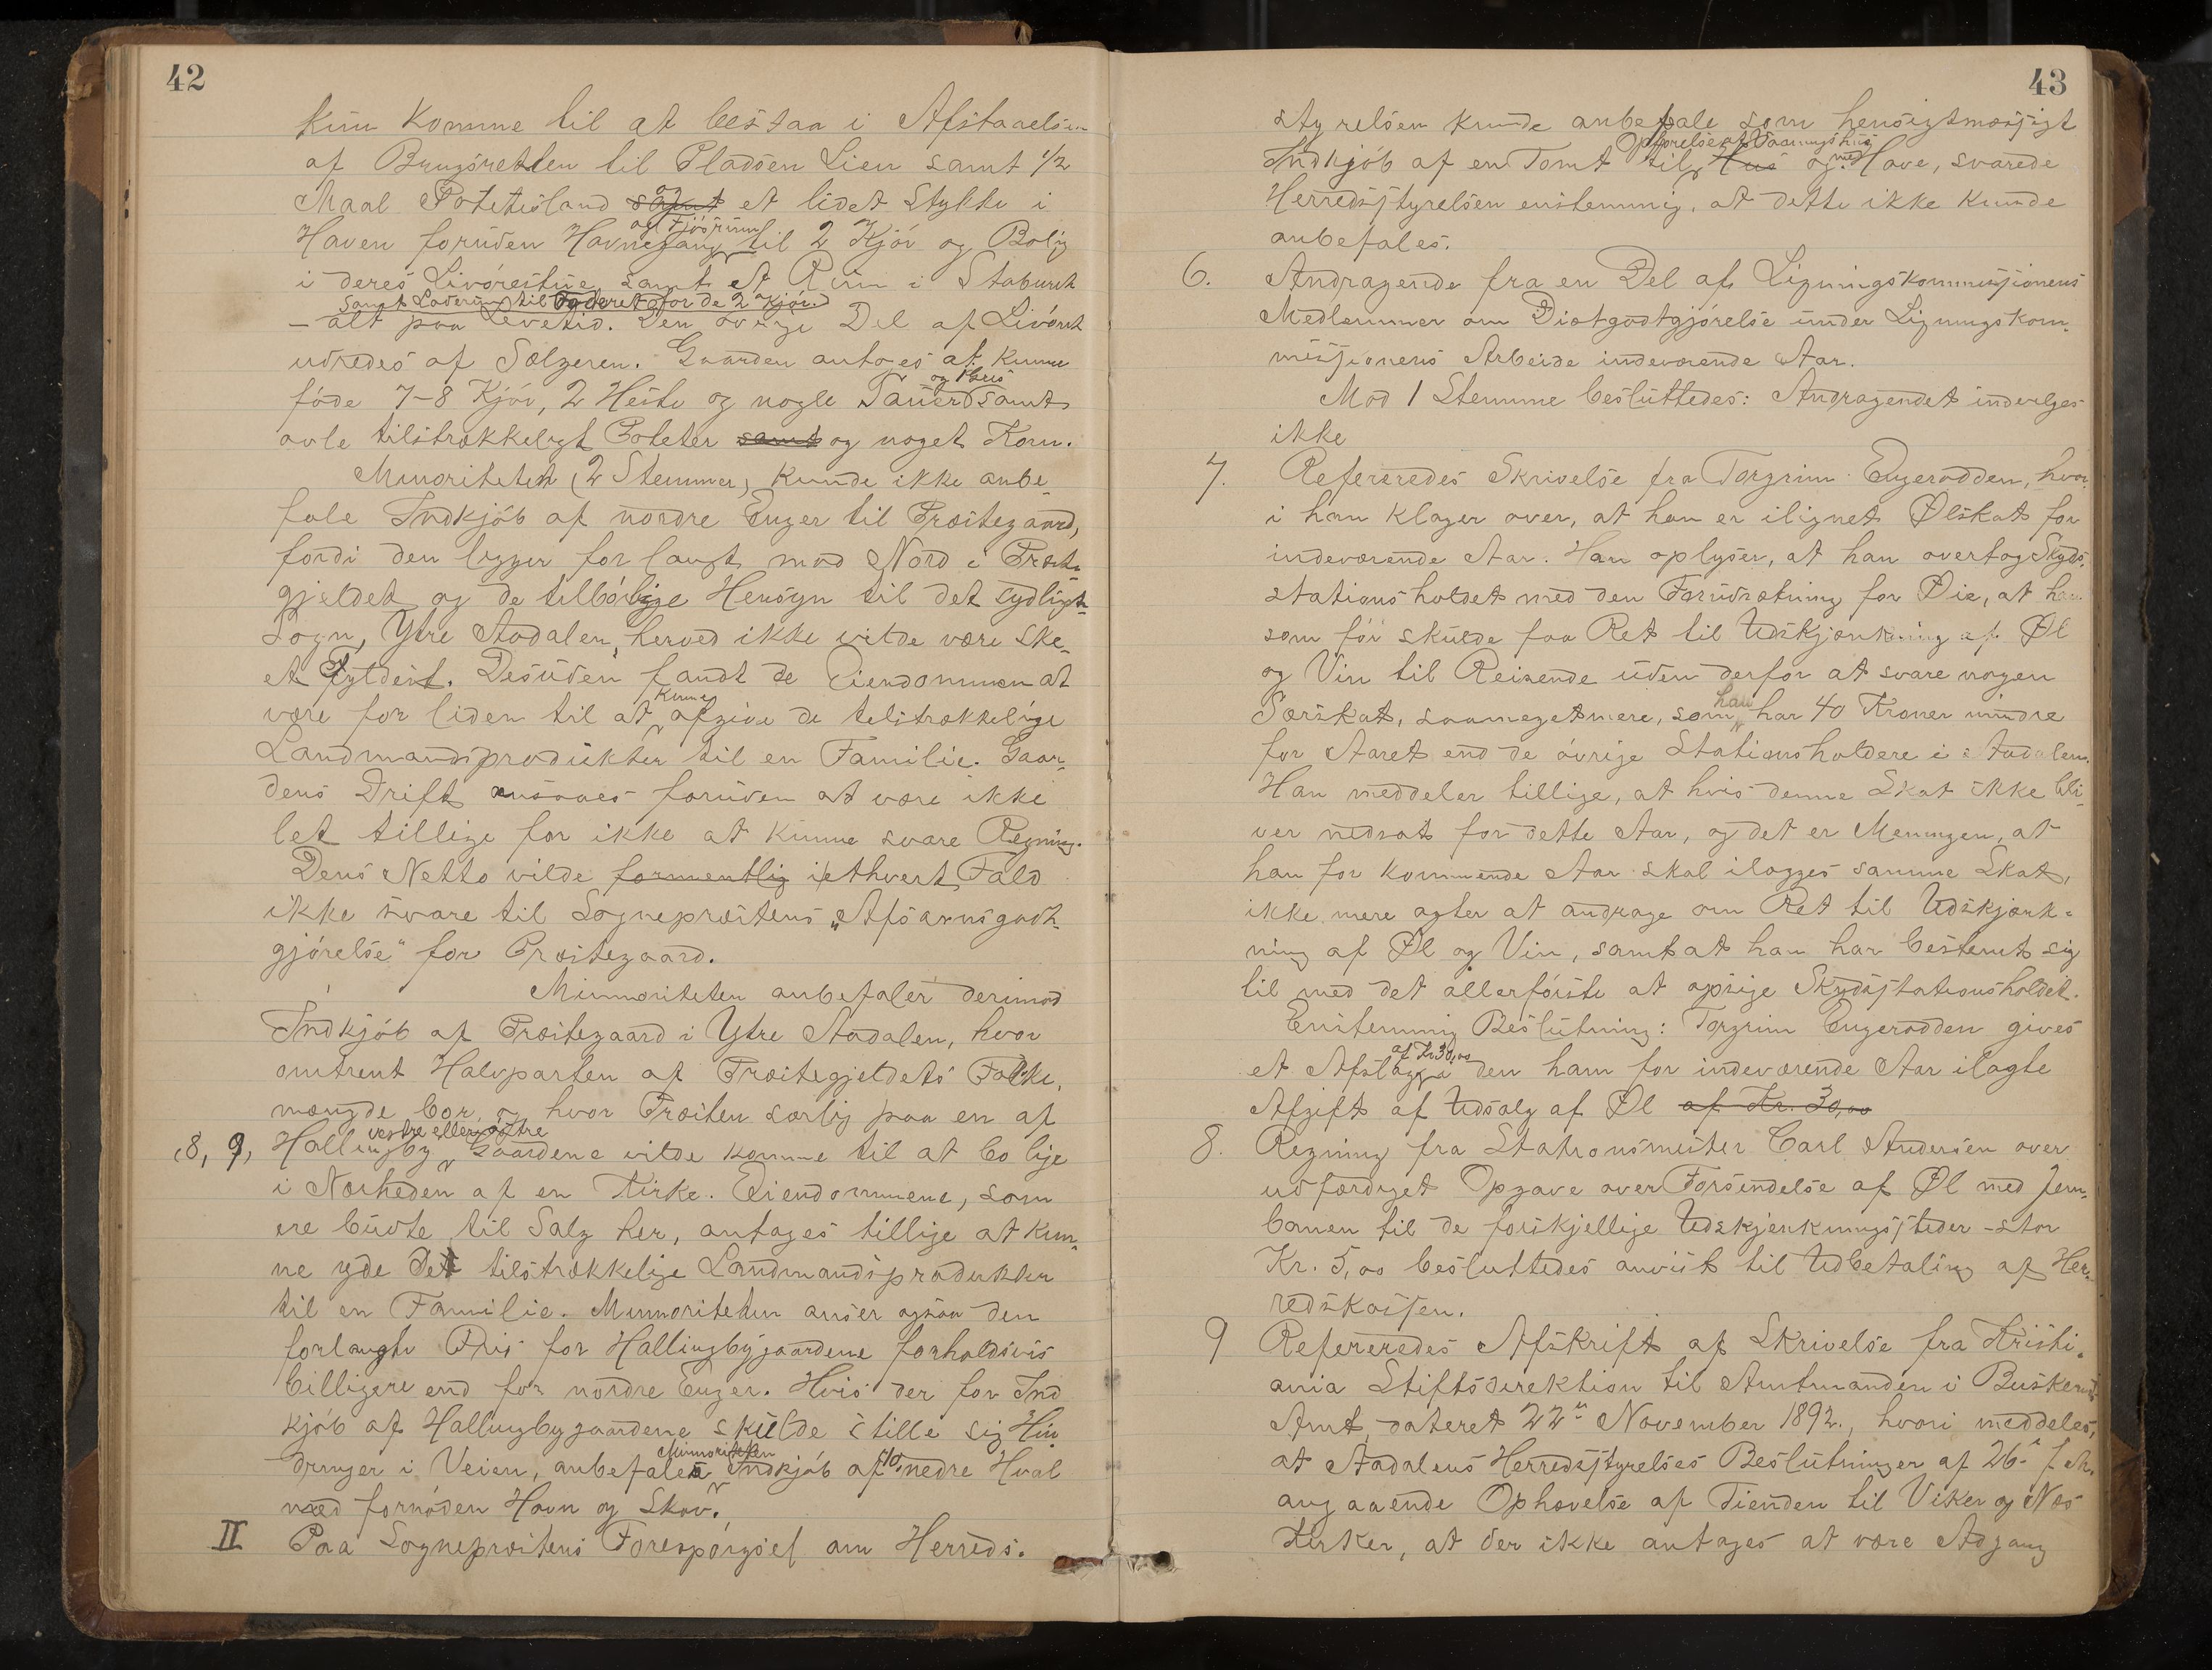 42
kun komme til at bestaa i Afstaaelsen
af Brugsretten til Pladsen Lien samt 1/2
Maal Potetesland samt og et lidet Stykke i
Haven foruden Havnegang og Fjösrum til 2 Kjör og Bolig
i deres Livörestue samt et Rum i Staburet
samt Laderum til Foderet for de 2 Kjör
– alt paa Levetid. Den övrige Del af Livöret
udredes af Sælgeren. Gaarden antages at kunne
föde 7-8 Kjör, 2 Heste og nogle Sauer samt
avle tilstrækkeligt Poteter samt og noget Korn.
Minoriteten (2 Stemmer) kunde ikke anbe-
fale Indkjöb af nordre Enger til Præstegaard,
fordi den ligger for langt mod Nord i Præste-
gjeldet og de tilbörlige Hensyn til det sydligste
Sogn, Ytre Aadalen, herved ikke vilde være ske-
et Fyldest. Desuden fandt de Eiendommen at
være for liden til at kunne afgive de tilstrækkelige
Landmandsprodukter til en Familie. Gaar-
dens Drift ansaaes foruden at være ikke
let tillige for ikke at kunne svare Regning.
Dens Netto vilde formentlig iethvert Fald
ikke svare til Sogneprestens „Afsavnsgodt-
gjörelse" for Præstegaard.
Minnoriteten anbefaler derimod
Indkjöb af Præstegaard i Ytre Aadalen, hvor
omtrent Halvparten af Præstegjeldets Folke-
mængde bor, og hvor Præsten særlig paa en af
(8, 9, Hallingby vestre eller östre Gaardene vilde komme til at bo lige
i Nærheden af en Kirke. Eiendommene, som
ere budte til Salg her, antages tillige at kun-
ne yde det tilstrækkelige Landmandsprodukter
til en Familie. Minnoriteten anser ogsaa den
forlangte Pris for Hallingbygaardene forholdsvis
billigere end for nordre Enger. Hvis der for Ind
kjöb af Hallingbygaardene skulde stille sig Hin
dringer i Veien, anbefaler Minnoriteten Indkjöb af 10, nedre Hval
med fornöden Havn og Skov.
II Paa Sogneprestens Forespörgsel om Herreds-
43
styrelsen kunde anbefale som hensigtmæssigt
Indkjöb af en Tomt til Opförelse af Vaaningshus Hus og med Have, svarede
Herredsstyrelsen enstemmig, at dette ikke kunde
anbefales.
6. Andragende fra en Del af Ligningskommissionens
Medlemmer om Diætgodtgjörelse under Ligningskom-
missionens Arbeide indeværende Aar.
Mod 1 Stemme besluttedes: Andragendet indvilges
ikke
7. Refereredes Skrivelse fra Torgrim Engerodden, hvor-
i han klager over, at han er ilignet Ølskat for
indeværende Aar. Han oplyser, at han overtog Skyds-
stationsholdet med den Forudsætning for Øie, at han
som för skulde faa Ret til Udskjænkning af Øl
og Vin til Reisende uden derfor at svare nogen
Særskat, saameget mere, som han har 40 Kroner mindre
for Aaret end de övrige Stationsholdere i Aadalen.
Han meddeler tillige, at hvis denne Skat ikke bli-
ver nedsat for dette Aar, og det er Meningen, at
han for kommende Aar skal ilægges samme Skat,
ikke mere agter at andrage om Ret til Udskjænk-
ning af Øl og Vin, samt at han har bestemt sig
til med det allerförste at opsige Skydsstationsholdet.
Enstemmig Beslutning: Torgrim Engerodden gives
et Afslag af Kr 30,00 i den ham for indeværende Aar ilagte
Afgift af Udsalg af Øl af Kr. 30,00
8. Regning fra Stationsmester Carl Andersen over
udfærdiget Opgave over Forsendelse af Øl med Jern-
banen til de forskjellige Udskjenkningssteder – stor
Kr. 5,00 besluttedes anvist til Udbetaling af Her-
redskassen.
9 Refereredes Afskrift af Skrivelse fra Kristi-
ania Stiftsdirektion til Amtmanden i Buskerud
Amt, dateret 22de November 1892, hvori meddeles,
at Aadalens Herredsstyrelses Beslutninger af 26de f. M.
angaaende Ophævelse af Tienden til Viker og Næs
Kirker, at der ikke antages at være Adgang